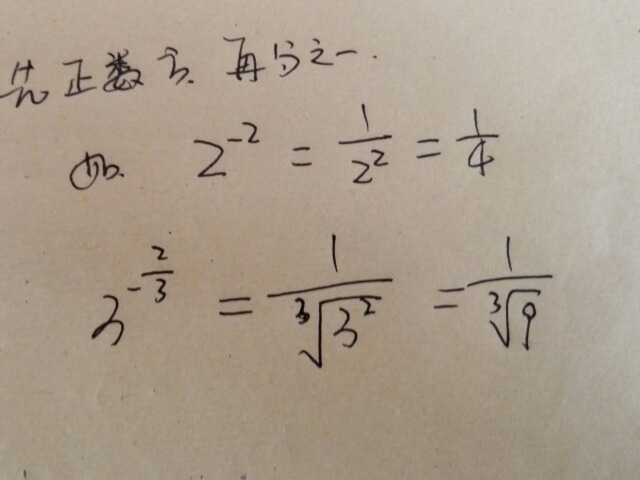 先正数方,再分之一.
如. 2^{-2} = \frac{1}{2^2} = \frac{1}{4}
3^{-\frac{2}{3}} = \frac{1}{\sqrt[3]{3^2}} = \frac{1}{\sqrt[3]{9}}